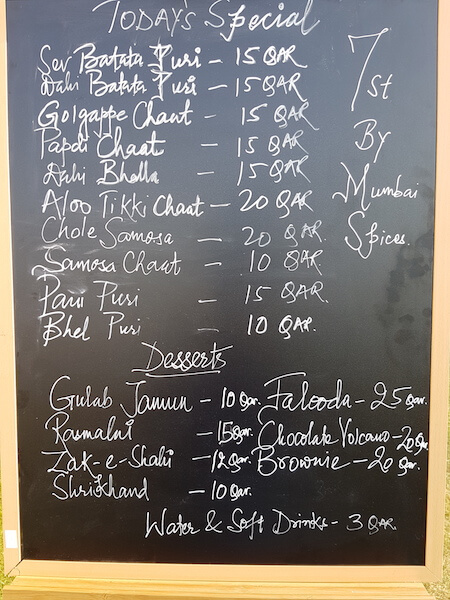 TODAY'S Special
Sev Batata Puri - 15 QAR
Dahi Batata Puri - 15 QAR
Golgappe Chaat - 15 QAR
Papdi Chaat - 15 QAR
Dahi Bhalla - 15 QAR
Aloo Tikki Chaat - 20 QAR
Chole Samosa - 20 QAR.
Samosa Chaat - 10 QAR
Pani Puri - 15 QAR.
Bhel Puri - 10 QAR.
7st
By
Mumbai
Spices.
Desserts
Gulab Jamun - 10 Qar. Falooda - 25 Qar.
Rasmalai - 15 Qar. Chocolate Volcano - 20 Qar
Zak-e-Shahi - 12 Qar. Brownie - 20 Qar.
Shrikhand - 10 Qar.
Water & Soft Drinks - 3 QAR.